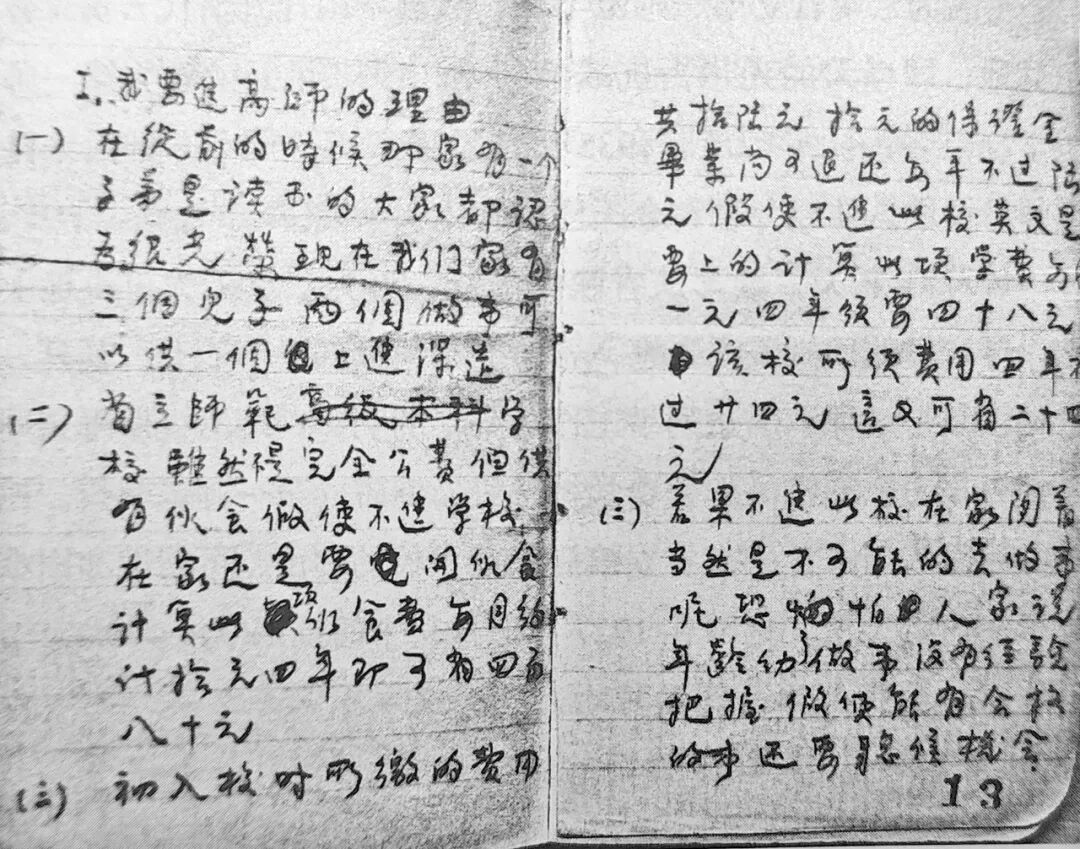 I. 我要進高师的理由
(一) 在從前的時候那家有一个
子弟是读书的大家都認
为很光榮現在我们家有
三個兒子两個做事可
以供一個上進深造
(二) 省立師範高级本科学
校雖然不是完全公費但供
有伙食假使不進学校
在家还是要開伙食
计算此項伙食費每月约
计拾元四年即可省四百
八十元
(三) 初入校时所缴的費用
共拾陆元 拾元的保證金
畢業尚可退还每年不过陆
元假使不進此校英文是
要上的计算此项学費每月
一元四年须要四十八元
该校所须費用四年不
过廿四元這又可省二十四
元
(三) 若果不進此校在家闲着
当然是不可能的去做事
呢恐怕人家说
年齡幼了做事没有经驗
把握假使能有合格
的事还要聽候機会
13